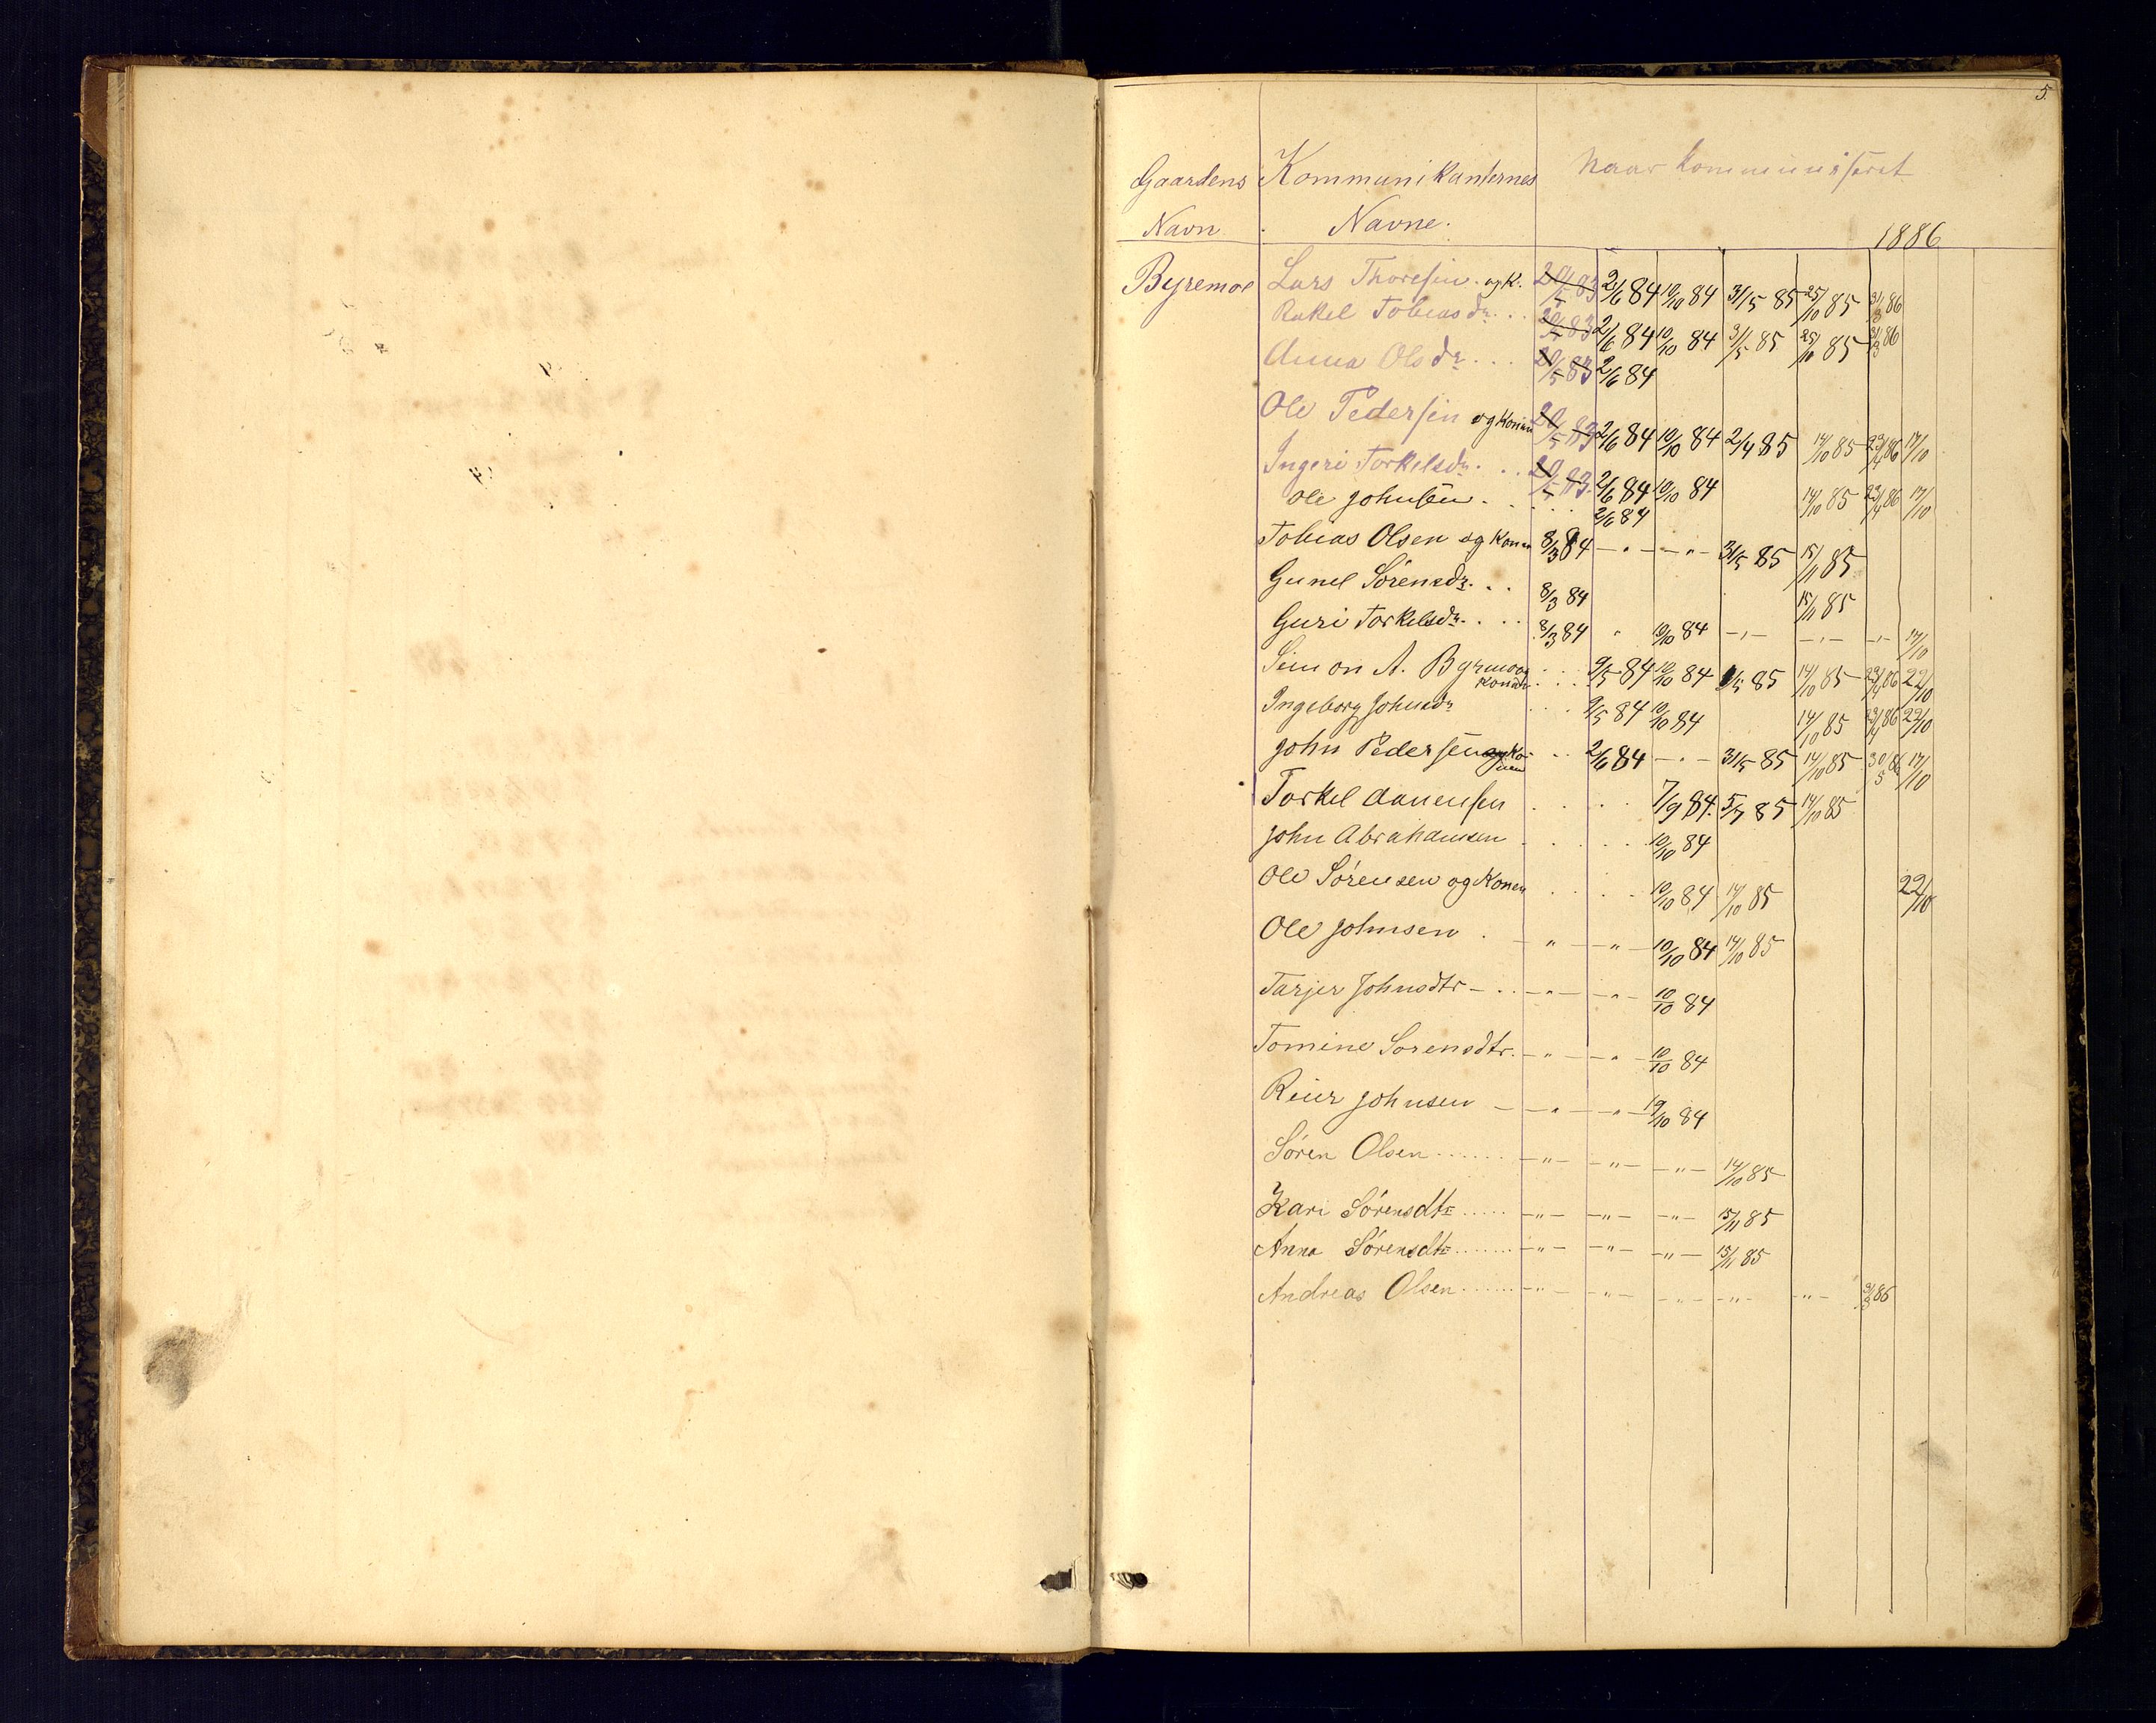 5.
Gaardens Kommunikanternes Naar kommuniseret
Navn Navne. 1886
Byremoe Lars Thoresen. og K. 20/5 83 2/6 84 10/10 84 31/5 85 25/10 85 31/3 86
Rakel Tobiasdr. . . 20/5 83 2/6 84 10/10 84 31/5 85 25/10 85 31/3 86
Anna Olsdr. . . 20/5 83 2/6 84
Ole Pedersen og Konen 20/5 83 2/6 84 10/10 84 2/4 85 14/10 85 23/4 86 17/10
Ingeri Torkelsdr. . . 20/5 83. 2/6 84 10/10 84 14/10 85 23/4 86 17/10
Ole Johnsen. . . . . 2/6 84
Tobias Olsen og Konen 8/3 84 — " — — " — 31/5 85 15/11 85
Gunel Sörensdr. . . 8/3 84 15/11 85
Guri Torkelsdr. . . . 8/3 84 " 10/10 84 — " — — " — — " — 17/10
Simon A. Byrmo og Konen . . . 9/5 84 10/10 84 /5 85 14/10 85 23/4 86 22/10
Ingeborg Johnsdr . . . 9/5 84 10/10 84 14/10 85 23/4 86 22/10
John Pedersen og Konen . . 2/6 84 — " — 31/5 85 14/10 85 30/5 86 17/10
Torkel Aanensen . . . . 7/9 84. 5/7 85 14/10 85
John Abrahamsen . . . . . 10/10 84
Ole Sörensen og Konen . . . . 10/10 84 14/10 85 22/10
Ole Johnsen . — " — — " — 10/10 84 14/10 85
Tarjer Johnsdtr — . . — " — — " — 10/10 84
Tomine Sorensdtr. — " — — " — 10/10 84
Reier Johnsen — — " — — " — 19/10 84
Sören Olsen . . . . . . — " — — " — — " — 14/10 85
Kari Sörensdtr . . . . . — " — — " — — " — 15/11 85
Anna Sörensdtr . . . . . . — " — — " — — " — 15/11 85
Andreas Olsen . . . . . . — " — — " — — " — — " — — " — 31/3 86